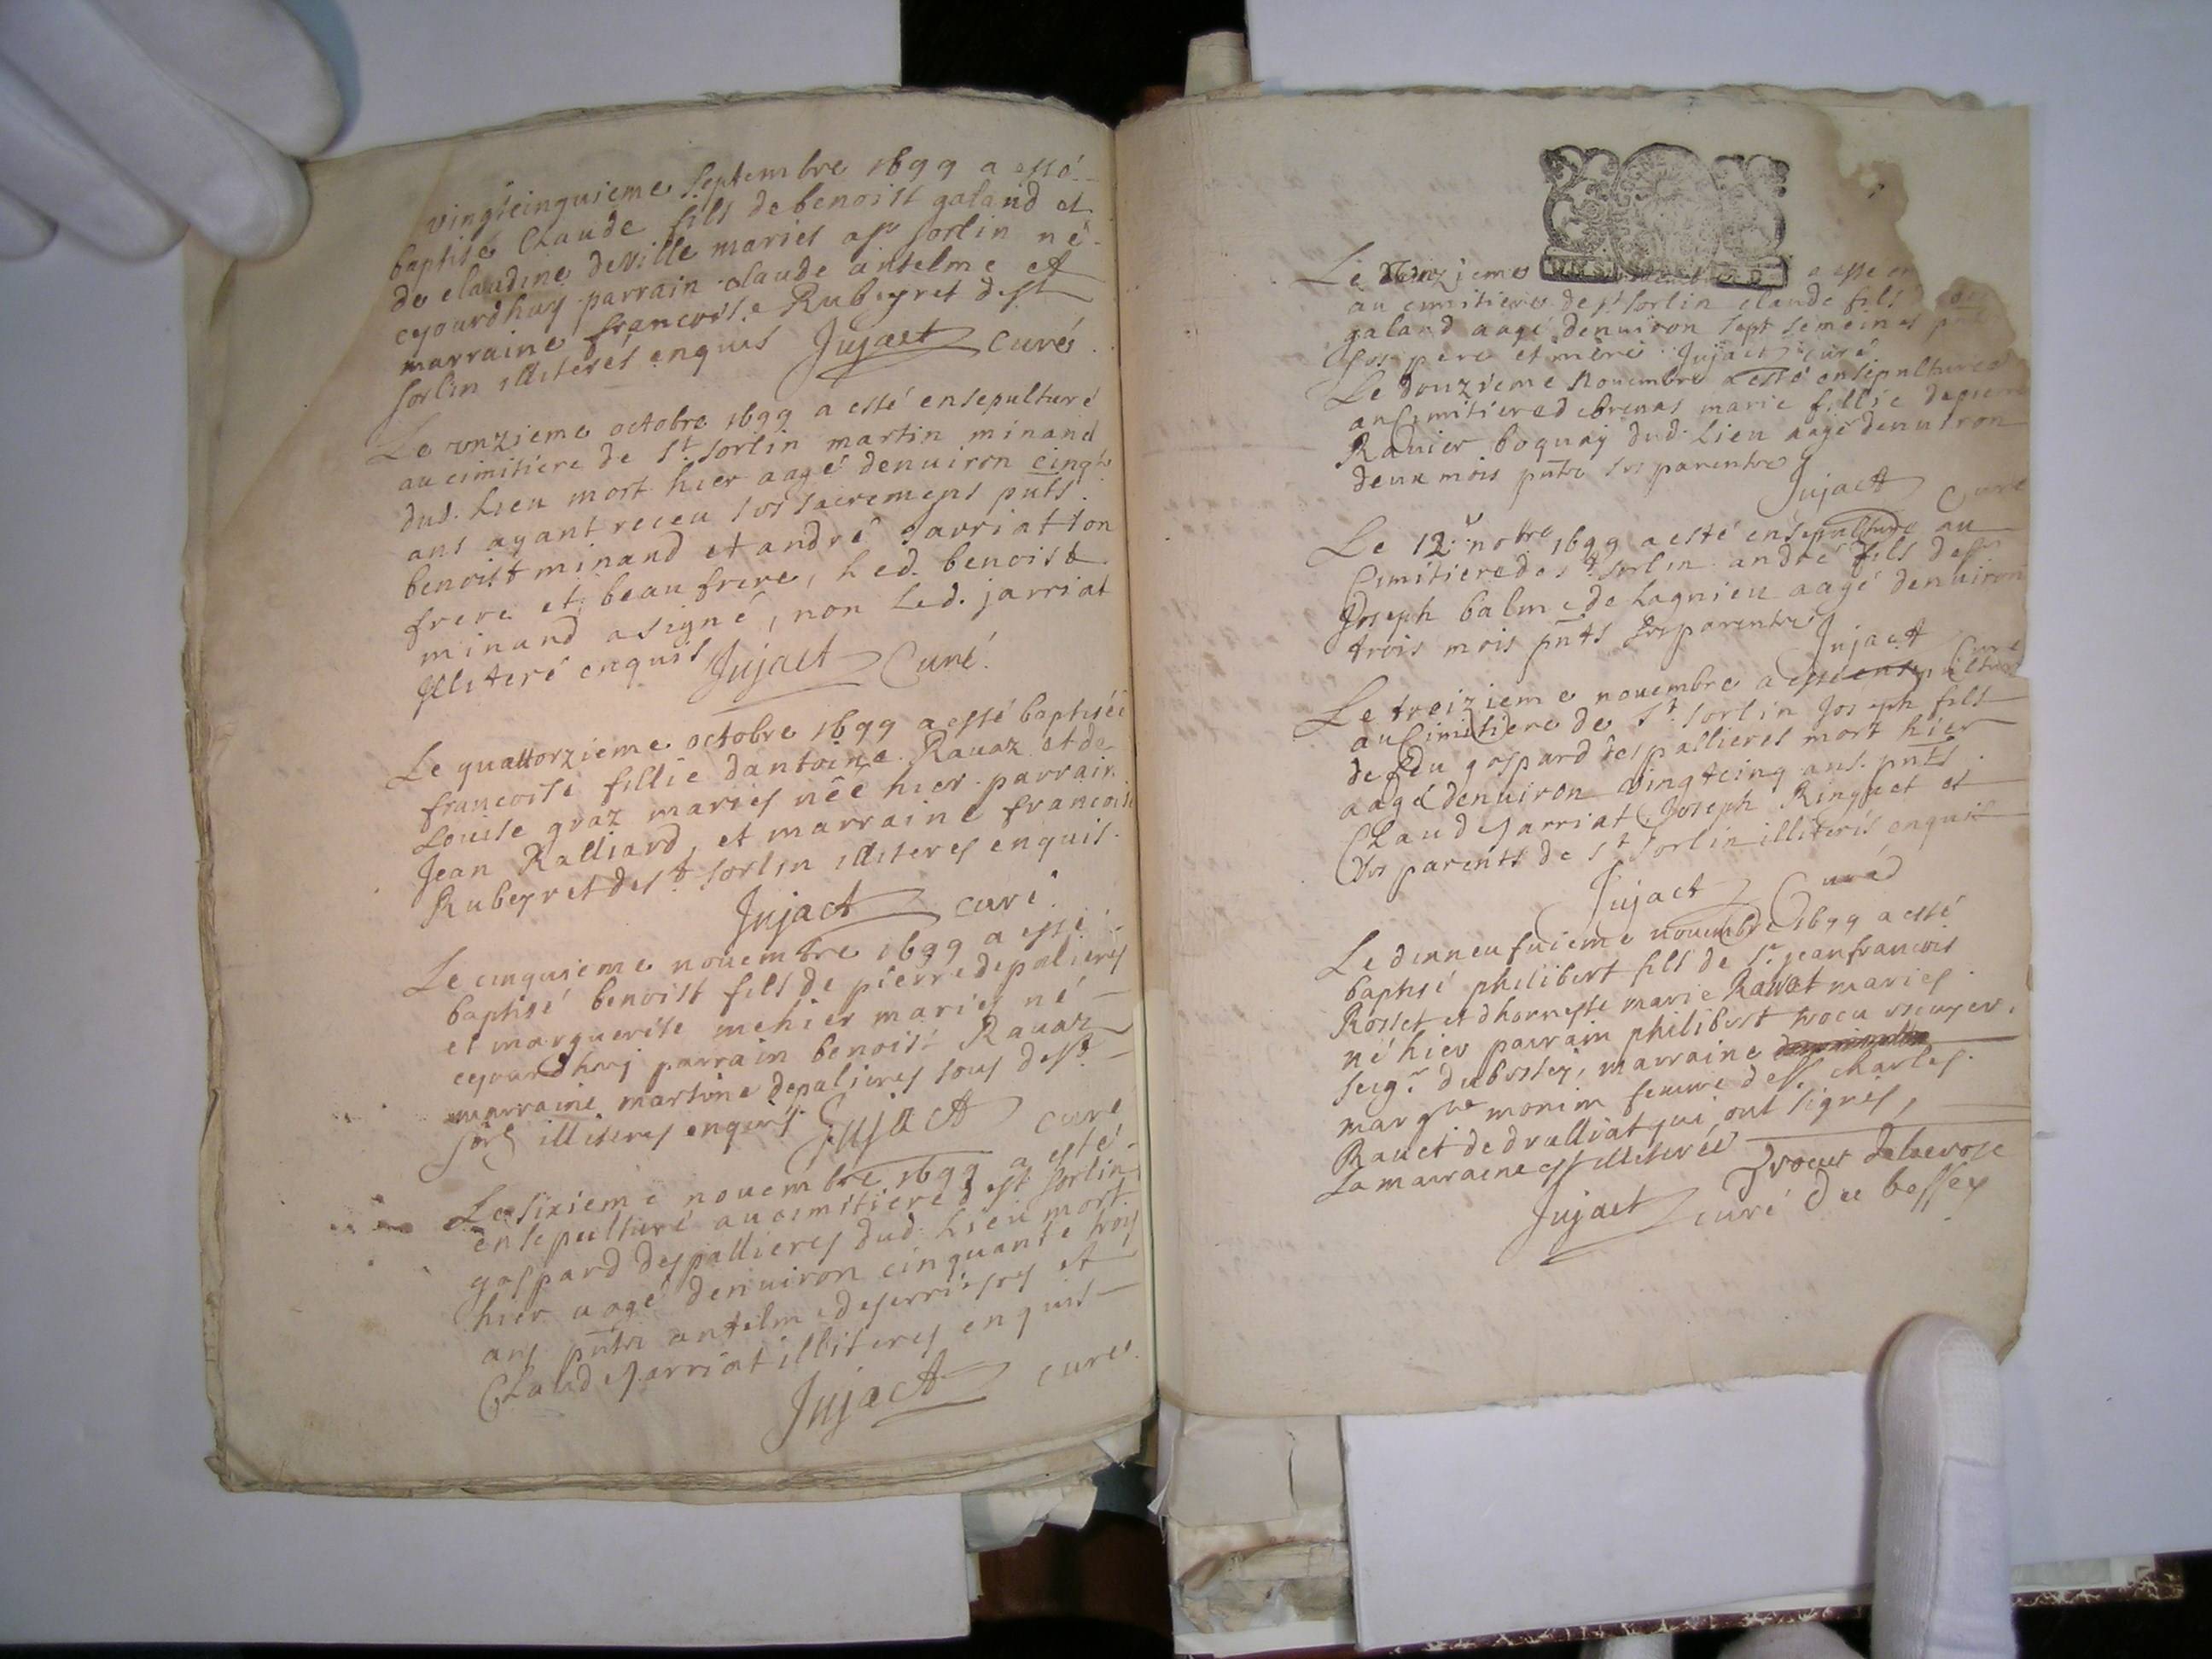 vingtcinquieme septembre 1699 a esté
baptisé Claude fils de benoist galand et
de claudine deville mariés a st sorlin né
ceyourdhuy parrain claude antelme et
marraine francoise Rubeyret dest
sorlin illiterés enquis Jujact curé
Le onzieme octobre 1699 a esté ensepulturé
au cimitiere de st sorlin martin minand
dud. Lieu mort hier aagé denuiron cinqte
ans ayant receu sos sacremens pnts
benoist minand et andré jarriat son
frere et beaufrere, Led. benoist
minand a signé, non Led. jarriat
Illiteré enquis Jujact Curé
Le quattorzieme octobre 1699 a esté baptiséé
francoise fillie dantoine Rauaz et de
Louise graz mariés néé hier parrain
Jean Ralliard, et marraine francoise
Rubeyret dest sorlin illiterés enquis
Jujact curé
Le cinquieme nouembre 1699 a esté
baptisé benoist fils de pierre depalieres
et marguerite mehier mariés né
ceyourdhuy parrain benoist Rauaz
marraine martine depalieres tous dest
sorl illiterés enquis Jujact curé
Le sixieme nouembre 1699 a esté
ensepulturé au cimitiere dest sorlin
gaspard despallieres dud. Lieu mort
hier aagé denuiron cinquante trois
ans pnts antelme deserrieres et
Claud Jarriat illiterés enquis
Jujact curé
Le a esté
au cimitiere de st sorlin claude fils
galand aagé denuiron sept semeines
sos pere et mere Jujact curé
Le douzieme nouembre a esté ensepulturéé
au Cimitiere de brenas marie fillie
Rauier boquay dud. Lieu aagé denuiron
deux mois pnts sos parents
Jujact Curé
Le 12e nobre 1699 a esté ensepulturé au
Cimitiere de st sorlin andré fils de sr
Joseph balme de Lagnieu aagé denuiron
trois mois pnts sos parents Jujact
Curé
Le treizieme nouembre a esté ensepulturé
au Cimitiere de st sorlin Joseph fils
de feu gaspard despallieres mort hier
aagé denuiron vingtcinq ans. pnts
Claud Jarriat Joseph Ringuet et
sos parents de st sorlin illiterés enquis
Jujact Curé
Le dixneufuieme nouembre 1699 a esté
baptisé philibert fils de sr jeanfrancois
Rosset et dhonneste marie Rauet mariés
né hier parrain philibert trocu escuyer,
seigr dubessey, marraine
margte monin femme de sr charles
Rauet de drulliat qui ont signés,
La marraine est illiteréé
Trocu delacrose
Jujact curé du bessey